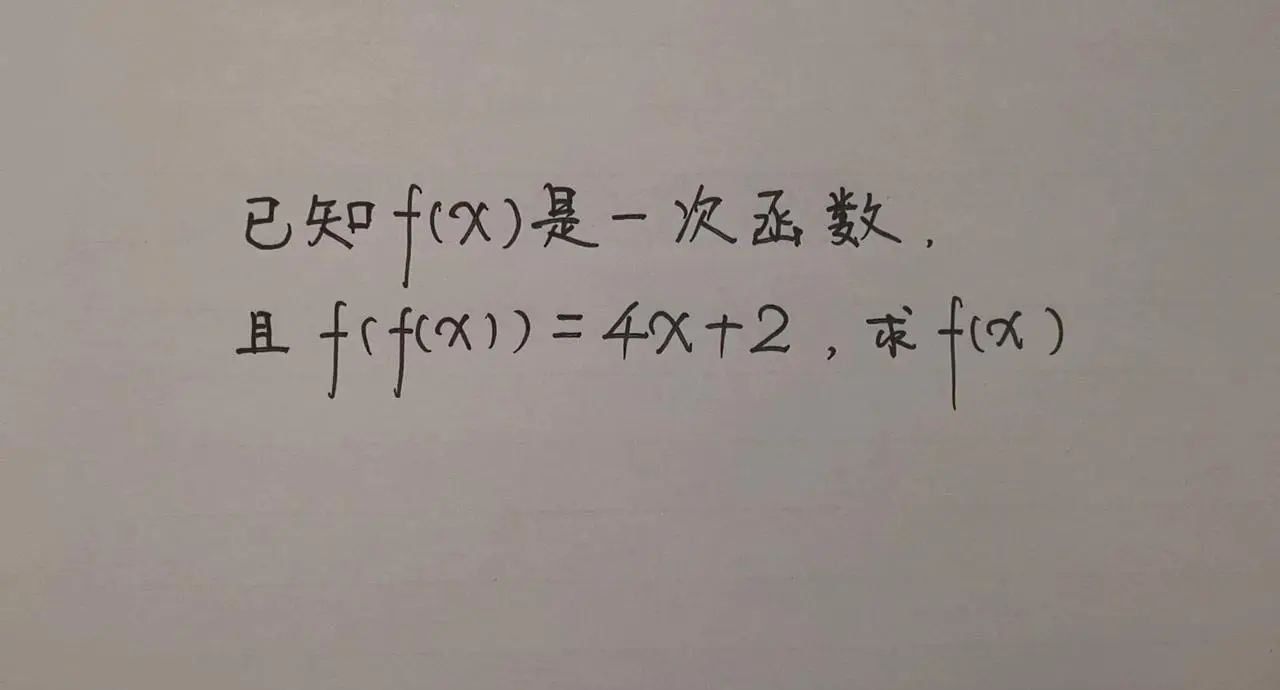 已知f(x)是一次函数,
且 f(f(x))=4x+2,求f(x)